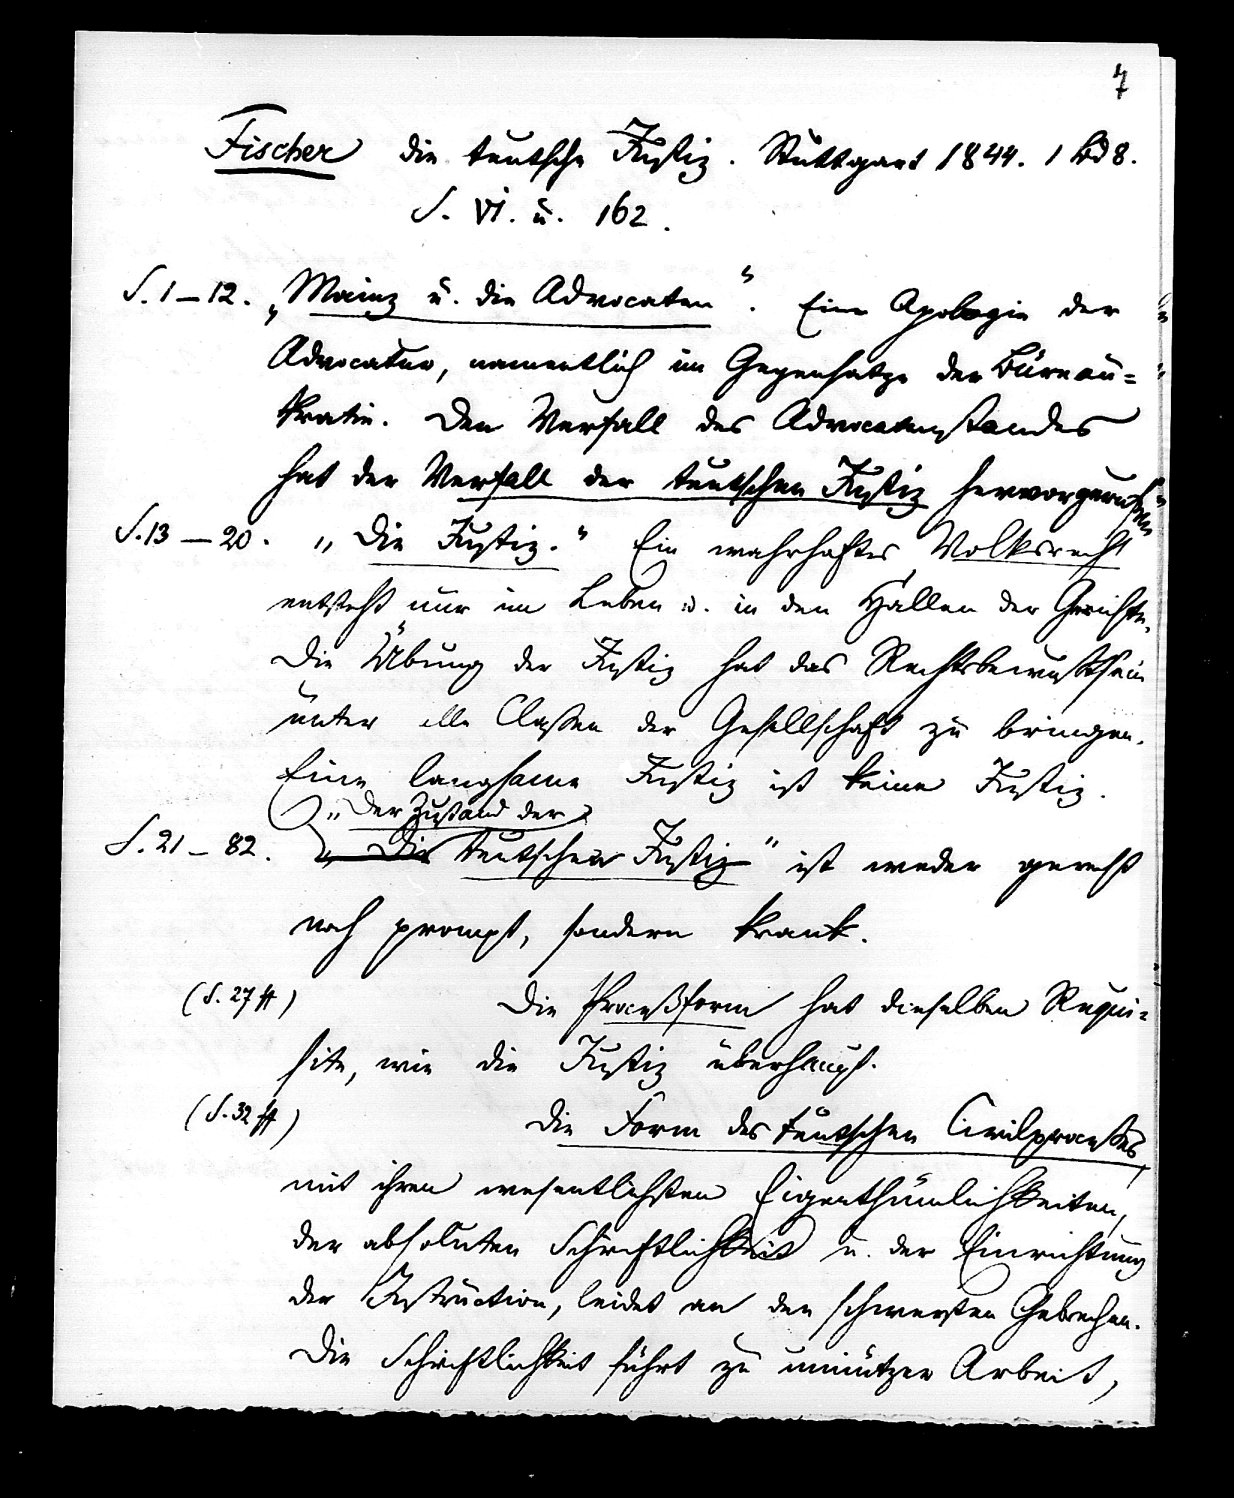 7
Fischer die teutsche Justiz. Stuttgart 1844. 1 Bd 8.
S. VI. u. 162.
S. 1–12. „Mainz u. die Advocaten". Eine Apologie der
Advocatur, namentlich im Gegensatze der Büreau=
kratie. Den Verfall des Advocatenstandes
hat der Verfall der teutschen Justiz hervorgerufen
S. 13–20. „Die Justiz." Ein wahrhaftes Volksrecht
entsteht nur im Leben u. in den Hallen der Gerichte.
Die Übung der Justiz hat das Rechtsbewußtsein
unter alle Classen der Gesellschaft zu bringen.
Eine langsame Justiz ist keine Justiz.
„Der Zustand der
S. 21–82. „Die teutschen Justiz" ist weder gerecht
noch prompt, sondern krank.
(S. 27 ff) Die Proceßform hat dieselben Requi=
site, wie die Justiz überhaupt.
(S. 32 ff) Die Form des teutschen Civilprocesses,
mit ihren wesentlichsten Eigenthümlichkeiten,
der absoluten Schriftlichkeit u. der Einrichtung
der Instruction, leidet an den schwersten Gebrechen.
Die Schriftlichkeit führt zu unnützer Arbeit,